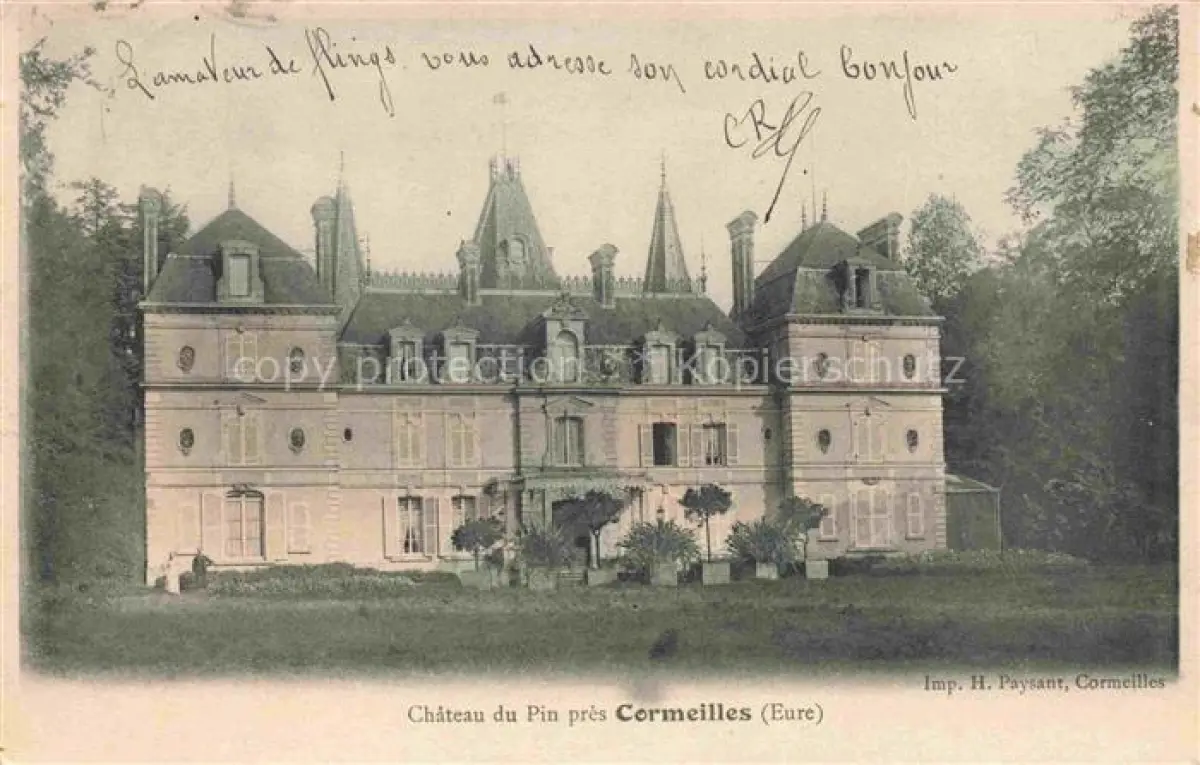 L'amateur de flings. vous adresse son cordial bonjour
CR
copy protection * * * Kopierschutz
Imp. H. Paysant, Cormeilles
Château du Pin près Cormeilles (Eure)